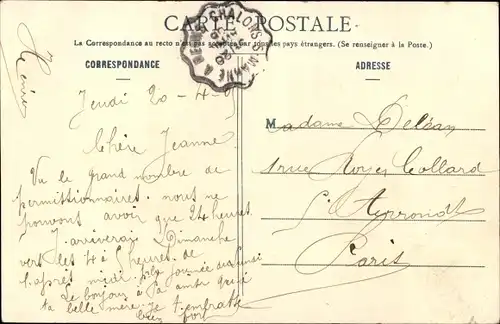 CARTE POSTALE
La Correspondance au recto n'est pas acceptée par tous les pays étrangers. (Se renseigner à la Poste)
CORRESPONDANCE
ADRESSE
CHALONS-S-MARNE A REIMS
Jeudi 20-4-
Chère Jeanne
Vu le grand nombre de
permissionnaires nous ne
pouvons avoir que 24 heures
J'arriverai Dimanche
vers les 4 à 5 heures de
l'après midi
Le bonjour à ta
ta belle mère. Je t'embrasse
bien fort
Madame
1 rue Royer Collard
Paris